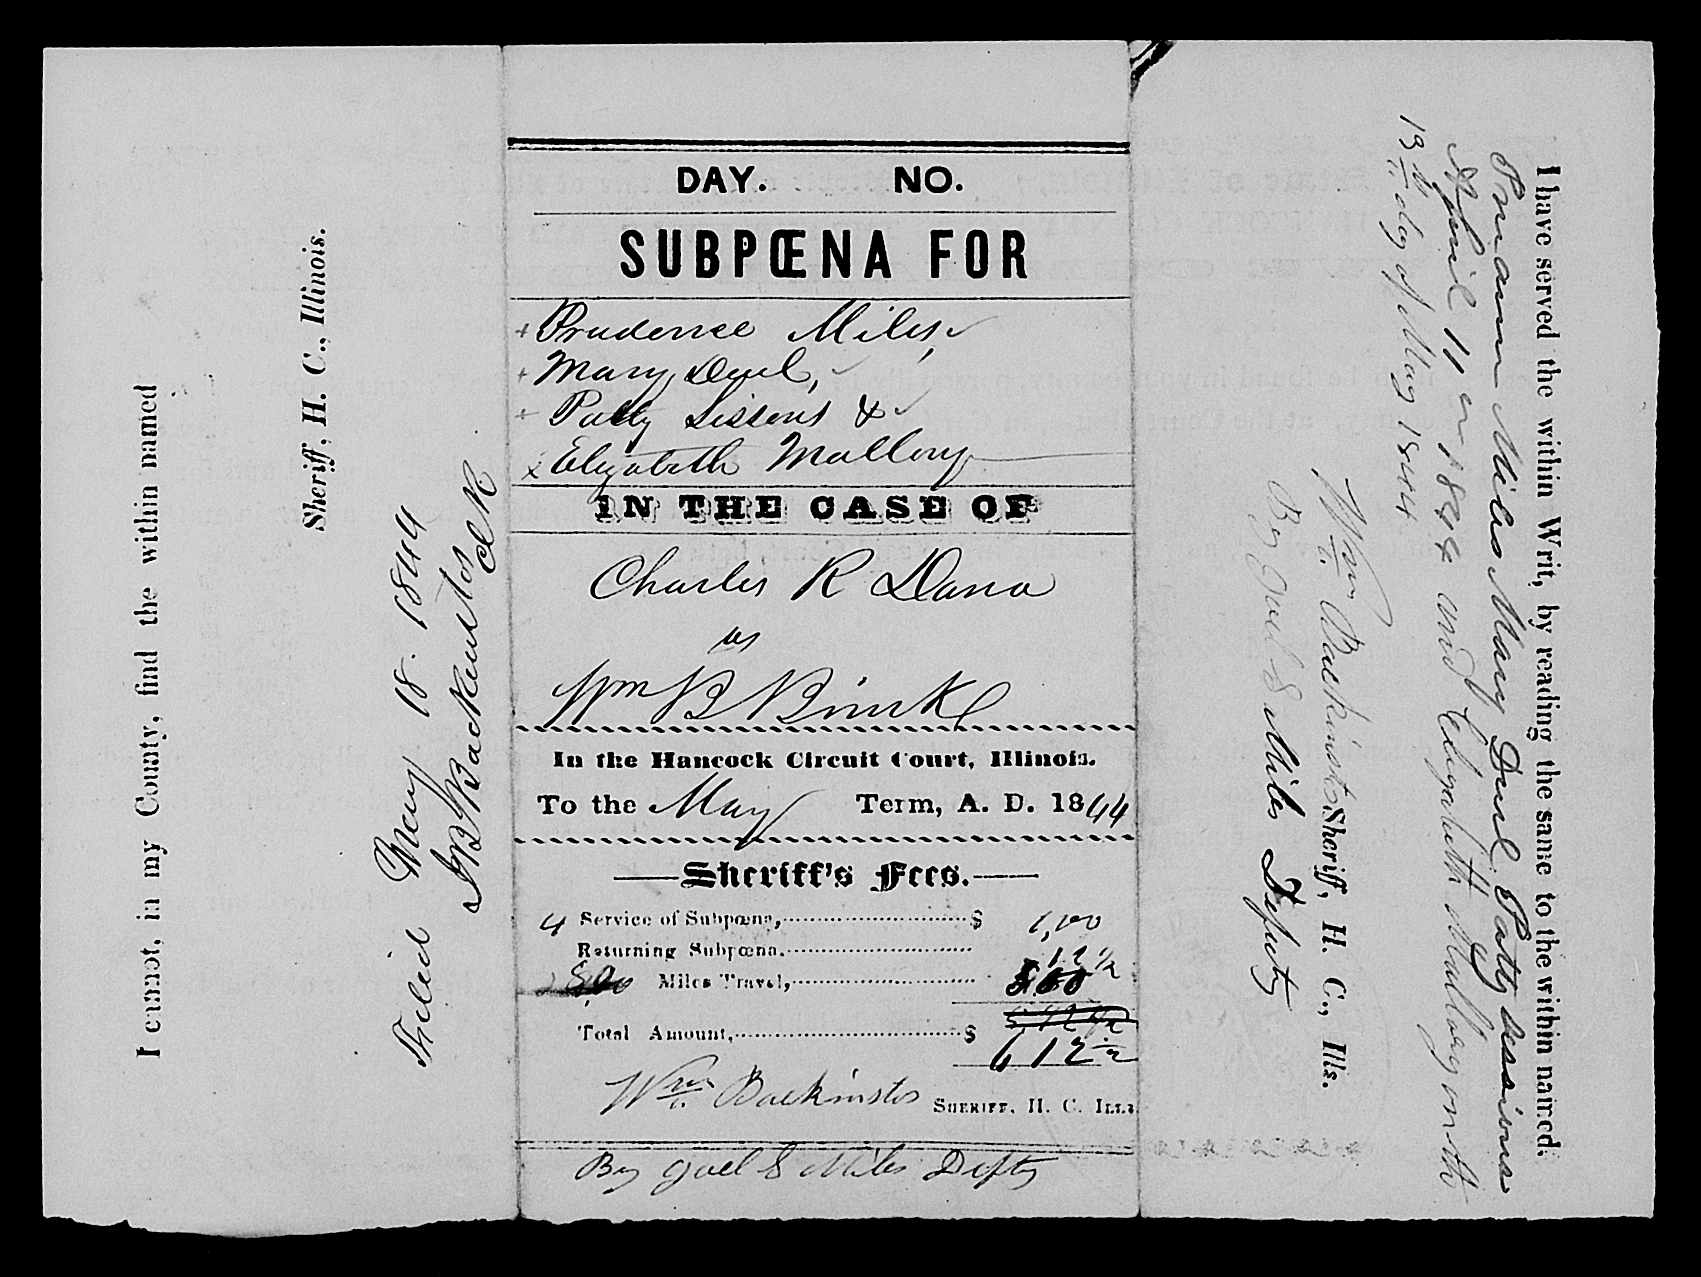 I cannot, in my County, find the within named
Sheriff, H. C., Illinois.
Filed May 18. 1844
J B Backenstos Clk
DAY. NO.
SUBPŒNA FOR
+ Prudence Miles,
+ Mary Deul,
+ Patty Sissons &
x Elizabeth Mallory
IN THE CASE OF
Charles R Dana
vs
Wm B Brink
In the Hancock Circuit Court, Illinois.
To the May Term, A. D. 1844
Sheriff's Fees.
4 Service of Subpœna, $ 1,00
Returning Subpœna. 12 1/2
Miles Travel, 5.00
Total Amount, $
6 12 1/2
Wm. Backinstos SHERIFF, H. C. ILLS
By Joel S Miles Depty
I have served the within Writ, by reading the same to the within named.
Miles Mary Deul Patty Sissions
April 11th 1844 and Elizabeth Mallory on th
13th day of May 1844
Wm. Backinstos Sheriff, H. C., Ills.
By Joel S Miles Deputy